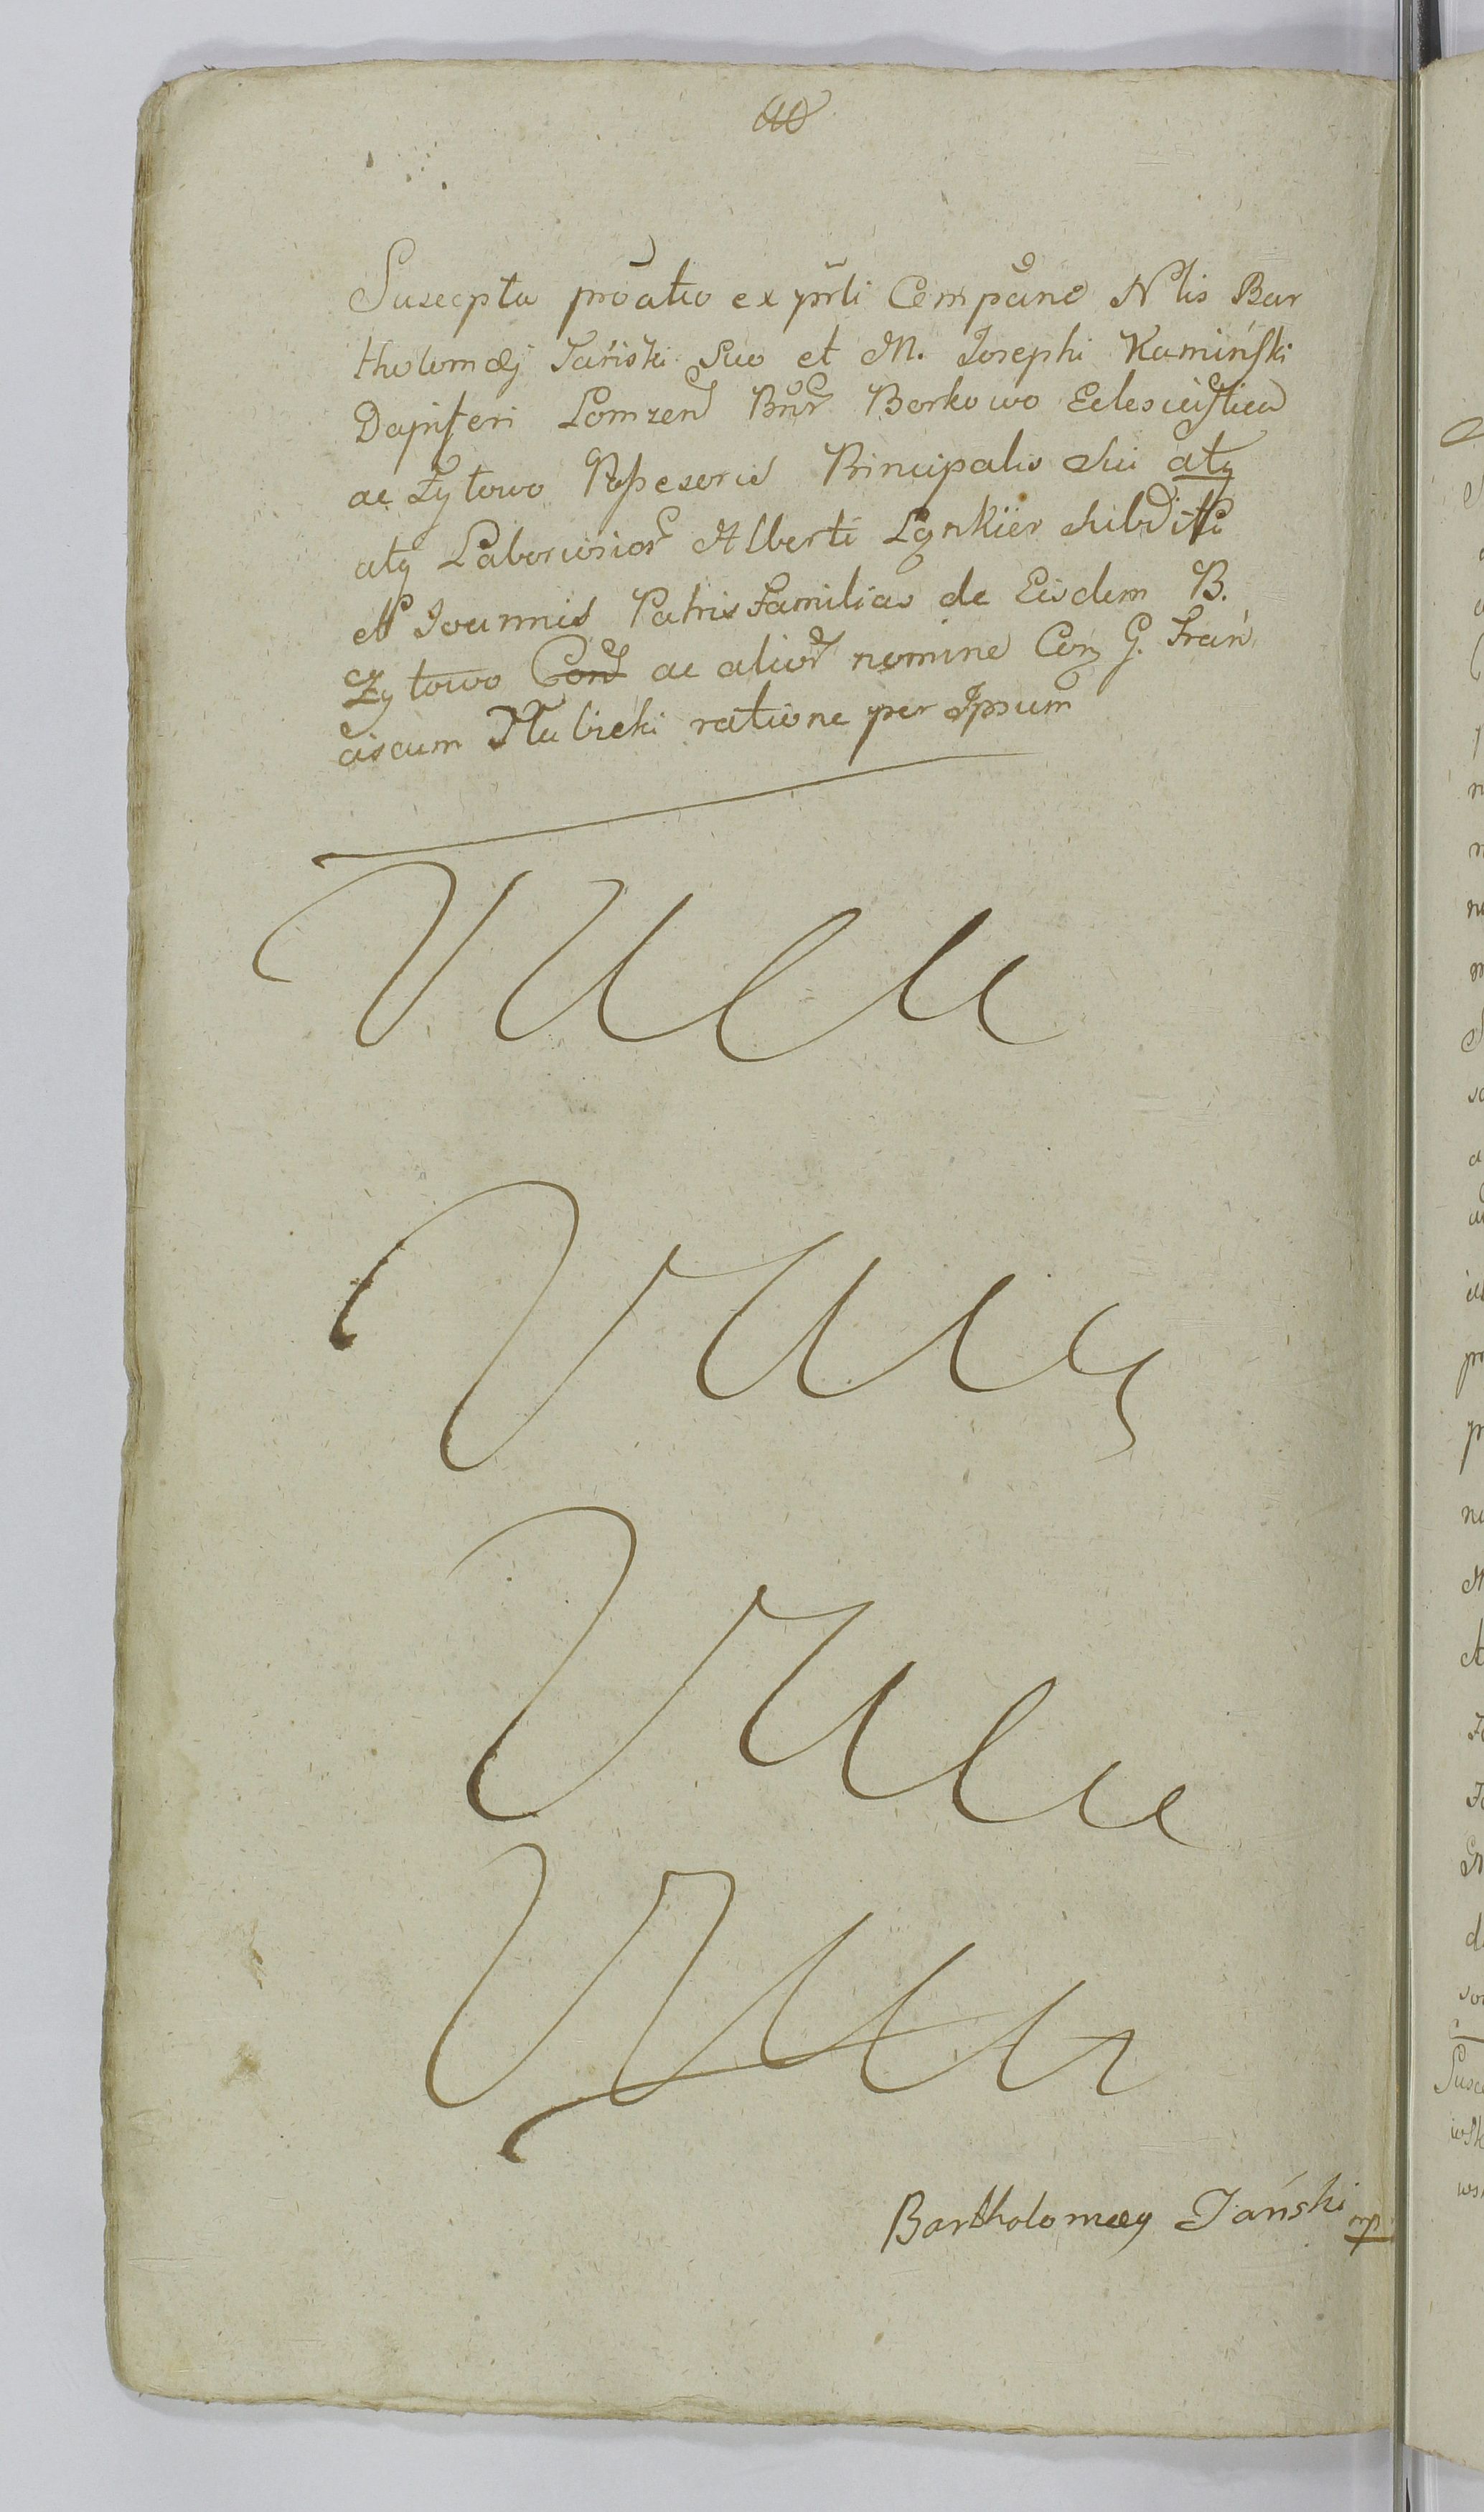 Suscepta prõatio ex pñti Compãne Nlis Bar
tholomæj Tański Suo et M. Josephi Kamiński
Dapiferi Lomzen Bnr Borkowo Eclesiastica
ac Zytowo Possesoris Principalis Sui atq
atq Laboriosior Alberti Lynkier Subditi
et Joannis Patris Familias de Eisdem B.
Zytowo Cond ac alior nomine Con G. Fran
ciscum Hubicki ratione per Ipsum
Bartholomæy Tański mp